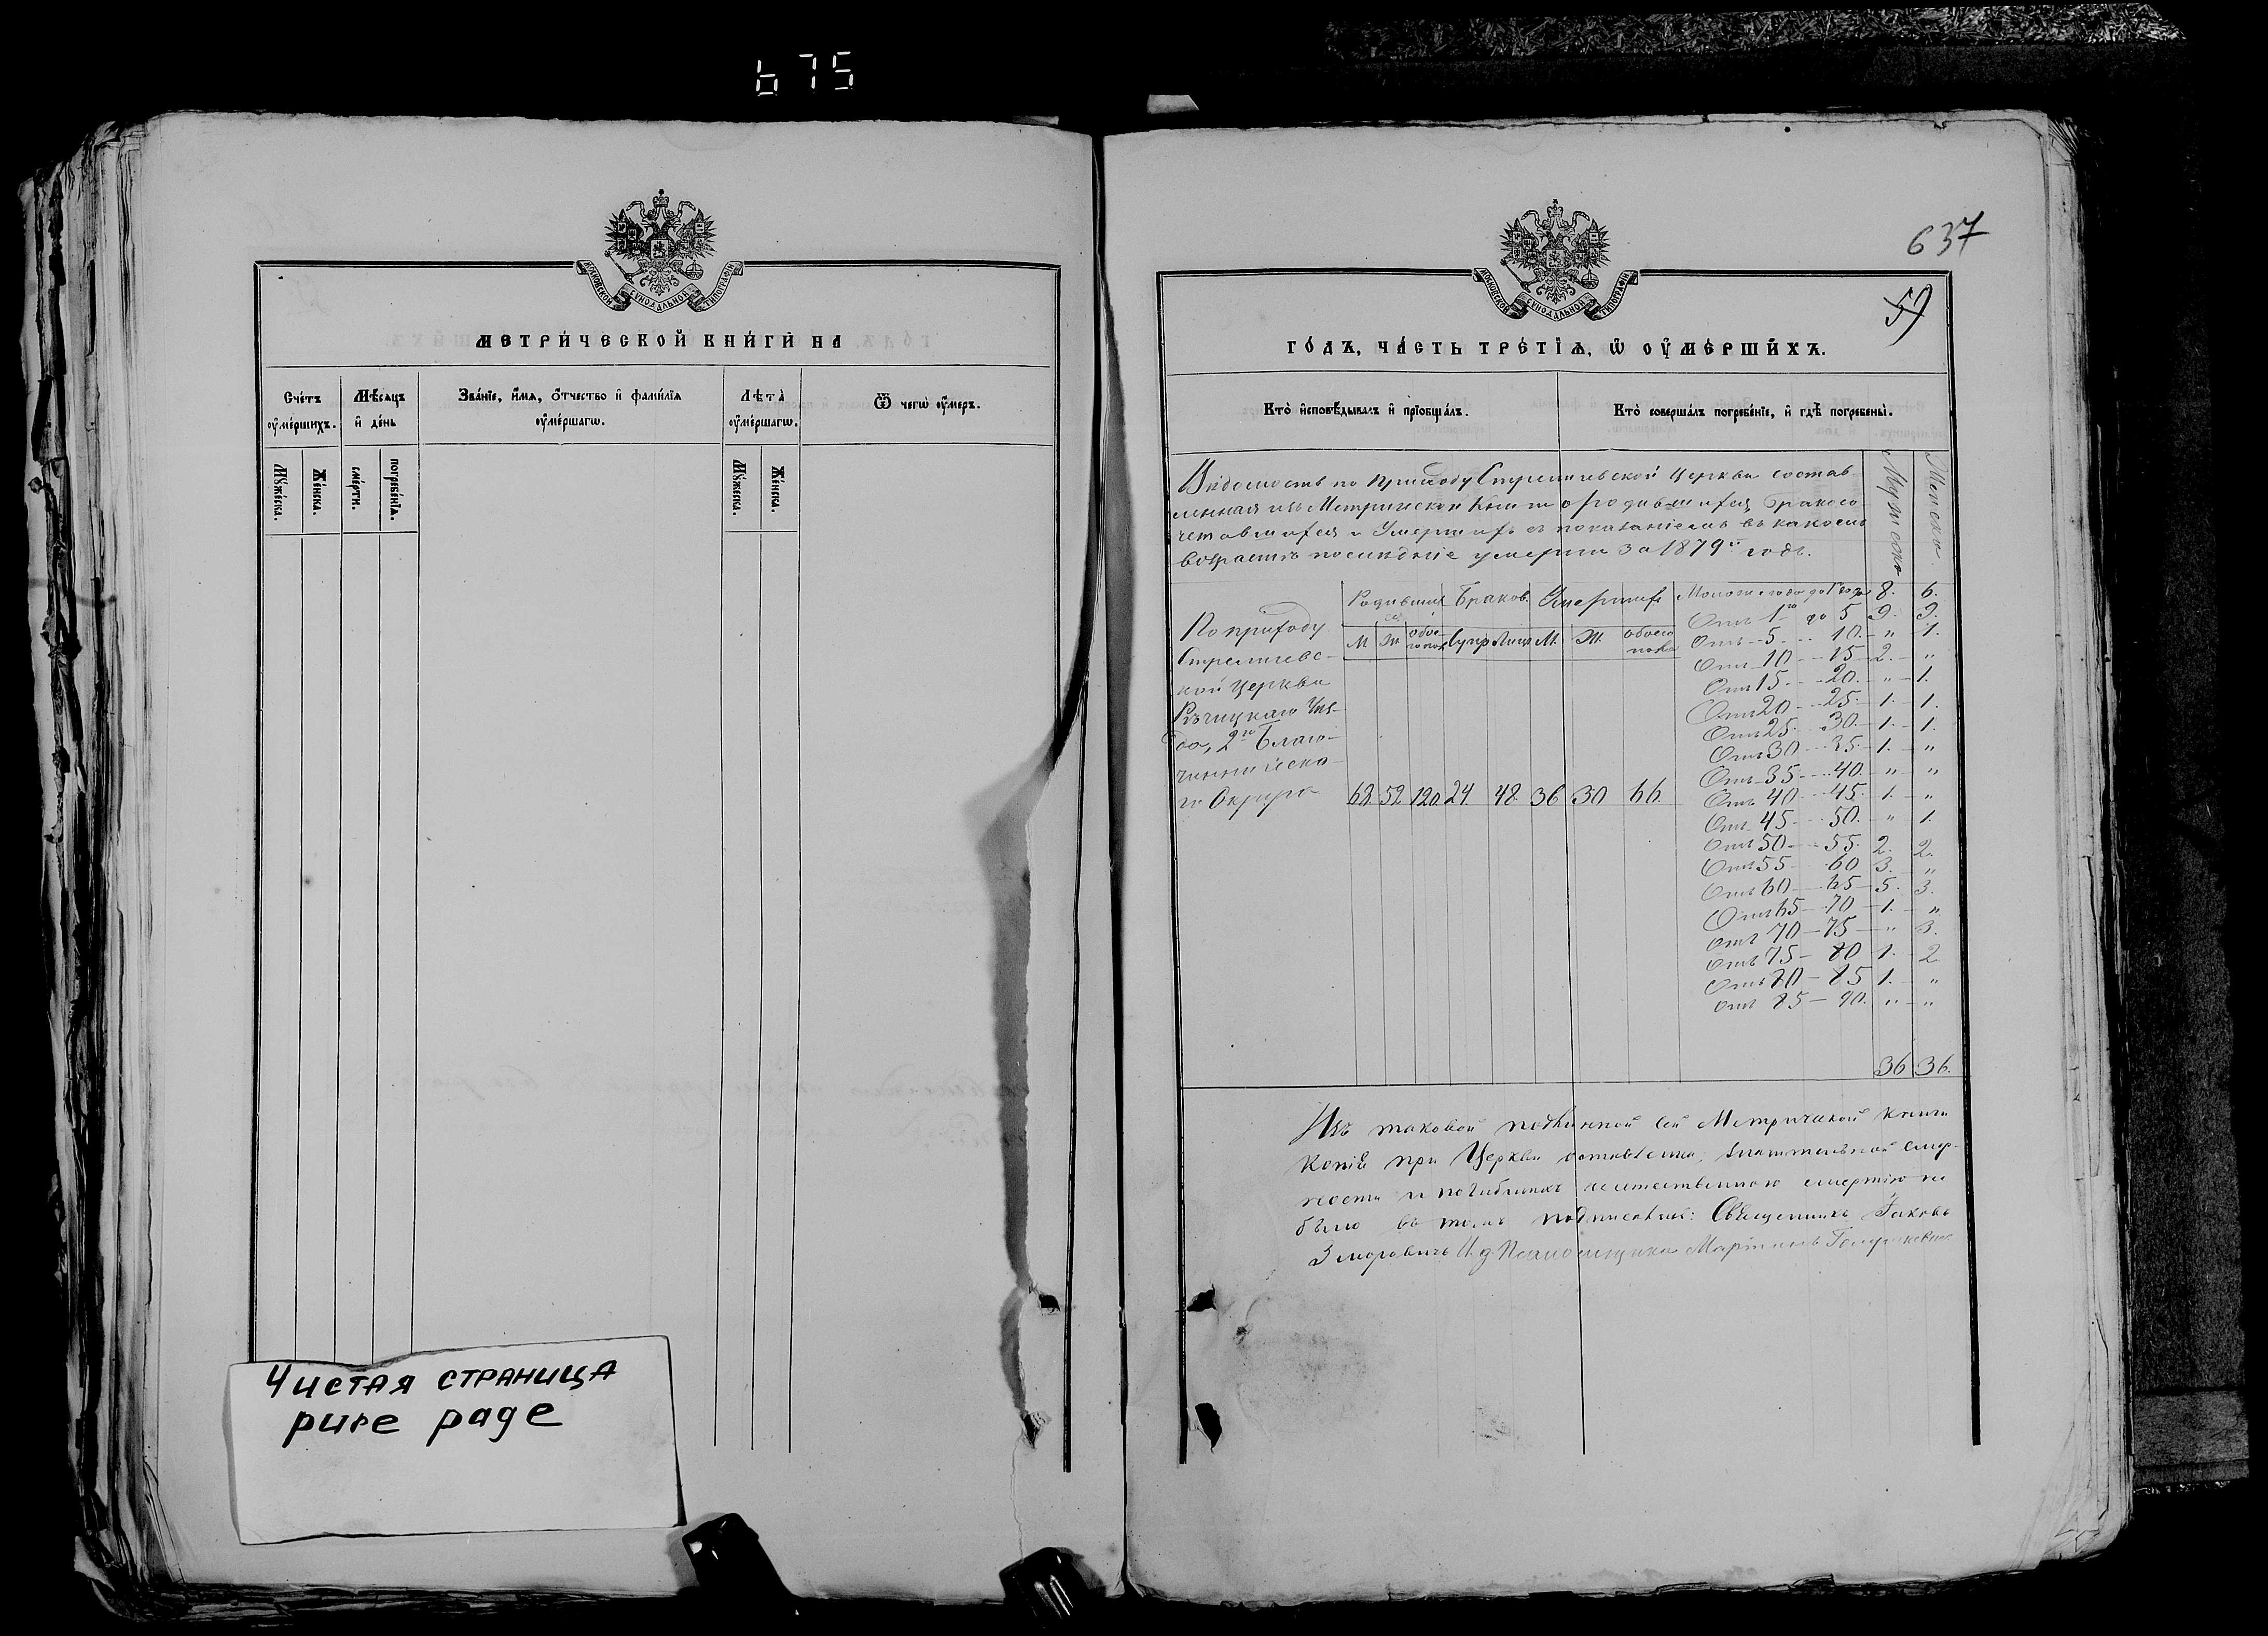 675
МОСКОВСКОЙ СѴНОДАЛЬНОЙ ТИПОГРАФІИ
МЕТРИ́ЧЕСКОЙ КНИ́ГИ НА
Сче́тъ оу҆ме́ршихъ.
Мѣ́сѧцъ и҆ де́нь
Зва́нїе, и҆́мѧ, ѻ҆́тчество и҆ фами́лїѧ оу҆ме́ршагѡ.
Лѣ́та оу҆ме́ршагѡ.
Ѿ чегѡ̀ оу҆́меръ.
Мꙋ́жеска.
Же́нска.
сме́рти.
погребе́нїѧ.
Мꙋ́жеска.
Же́нска.
Чистая страница
pure page
637
59
МОСКОВСКОЙ СѴНОДАЛЬНОЙ ТИПОГРАФІИ
ГО́ДЪ, ЧА́СТЬ ТРЕ́ТЇѦ, Ѡ҆ ОУ҆МЕ́РШИХЪ.
Кто̀ и҆сповѣ́дывалъ и҆ прїобща́лъ.
Кто̀ соверша́лъ погребе́нїе, и҆ гдѣ̀ погребены̀.
Вѣдомость по приходу Стреличевской Церкви состав
ленная изъ Метрической Книги о родившихся, бракосо
четавшихся и Умершихъ съ показаніемъ въ какомъ
возрастѣ последніе умерли за 1879й годъ.
Мужеска
Женска
По приходу
Стреличевс-
кой Церкви
Рѣчицкаго Уѣз-
да, 2го Благо-
чинническа-
го Округа
Родившихся Браковъ. Умершихъ
М Ж обоего пола Супр Лицъ М. Ж. обоего пола
68. 52 120. 24. 48. 36 30 66.
Моложе года до 1 года 8. 6.
Отъ 1го до 5 9. 9.
Отъ 5 10. " 1.
Отъ 10 15 2. "
Отъ 15 20. " 1.
Отъ 20 25. 1. 1.
Отъ 25. 30. 1. 1.
Отъ 30 35. 1. "
Отъ 35 40. " "
Отъ 40 45. 1. "
Отъ 45 50. " 1.
Отъ 50 55. 2. 2.
Отъ 55 60 3. "
Отъ 60 65 5. 3.
Отъ 65 70 1. "
Отъ 70 75 " 3.
Отъ 75 80 1. 2
Отъ 80 85 1. "
Отъ 85 90. " "
36 36.
Изъ таковой подлинной сей Метрической Книги
Копіѣ при Церкви оставлена, значительной смер-
ности и погибшихъ неестественною смертію не
было въ томъ подписались: Священникъ Іаковъ
Зморовичъ И. д. Псаломщика Мартинъ